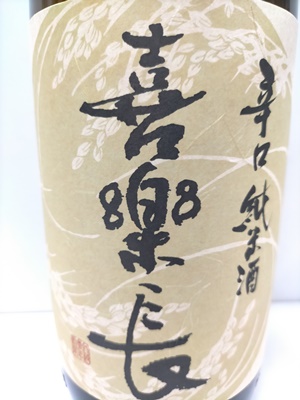 辛口純米酒
喜樂長